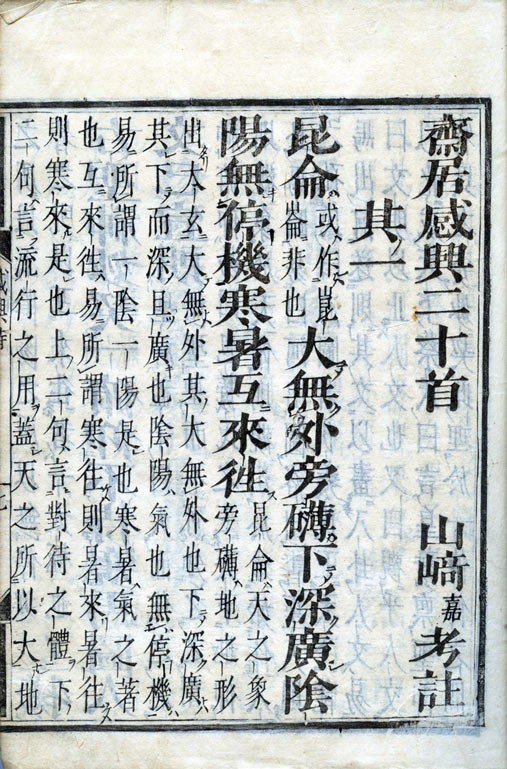 齋居感興二十首 山﨑嘉考註
其一
昆侖或作崑崙非也大無外旁礴下深廣陰
陽無停機寒暑互來徃昆侖天之象旁礴地之形
出大玄大無外其大無外也下深廣
其下而深且廣也陰陽氣也無停機
易所謂一陰一陽是也寒暑氣之著
也互來徃易所謂寒徃則暑來暑徃
則寒來是也上二句言對待之體下
二句言流行之用蓋天之所以大地